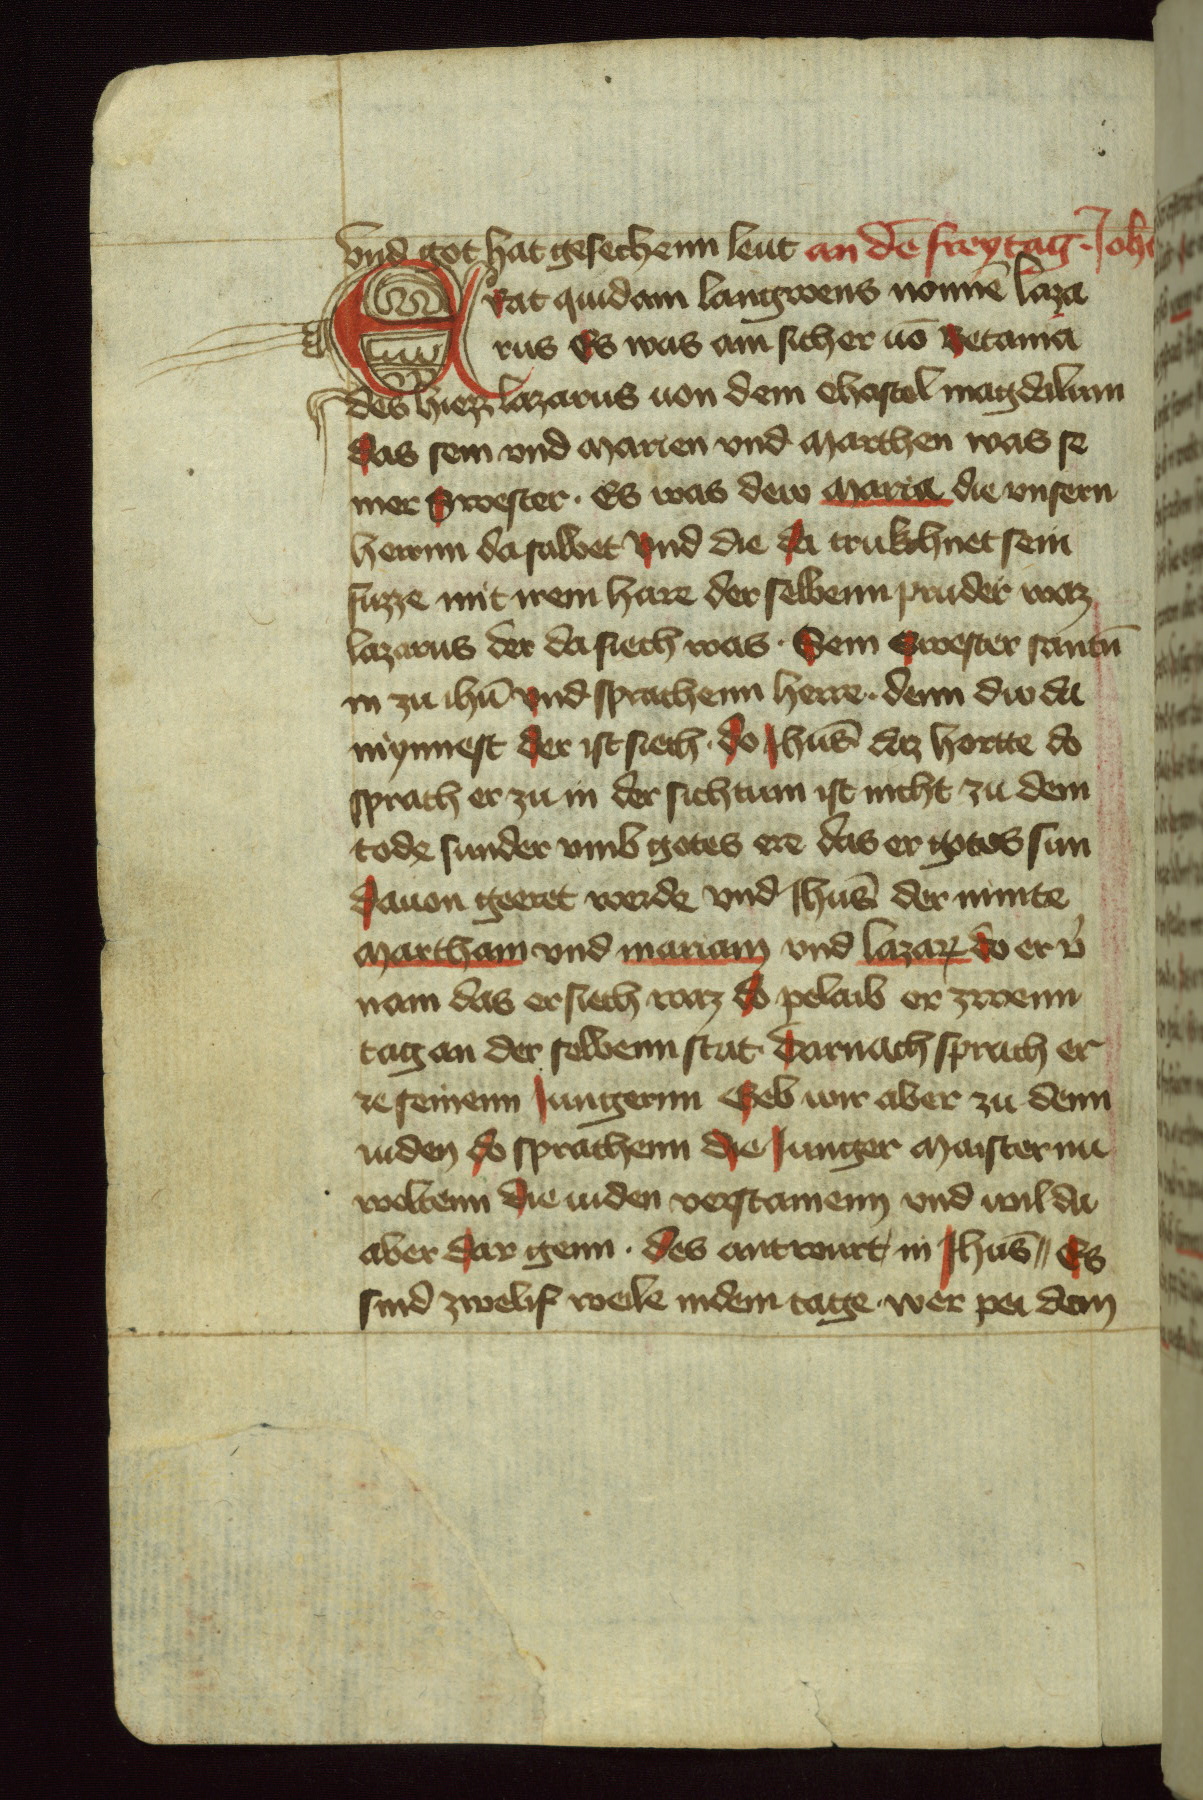 vnd got hat gesechenn leut an dē freytag. Joh
Erat quidam langwens nomē laza
rus Es was ain sicher uō Betania
des hiezz lazarus uon dem chastel magdalum
das sein vnd Marien vnd Marthen was se
iner Swester. Es was dew Maria die vnsern
herrnn da salbet Vnd die da trukchnet sein
fuzze mit irem hare der selbenn pruder waz
lazarus der da siech was. Sein Swester santn̄
in zu ihū vnd sprachenn herre. denn dw da
mynnest der ist siech. do Jhūs daz hortte do
sprach er zu in der sichtum ist nicht zu dem
tode sunder vmb gotes ere das er gotes sun
dauon geeret werde vnd Jhūs der minte
Martham vnd mariam vnd lazarꝫ do er v̾
nam das er siech waz do pelaib er zwenn
tag an der selbenn stat Darnach sprach er
ze seinenn Jungernn Geb wir aber zu denn
iuden do sprachenn die Junger Maister nu
woltenn die iuden verstainenn vnd wil du
aber dar genn. des antwurt in Jhūs // Es
sind zwelif weile indem tage. wer pei dem